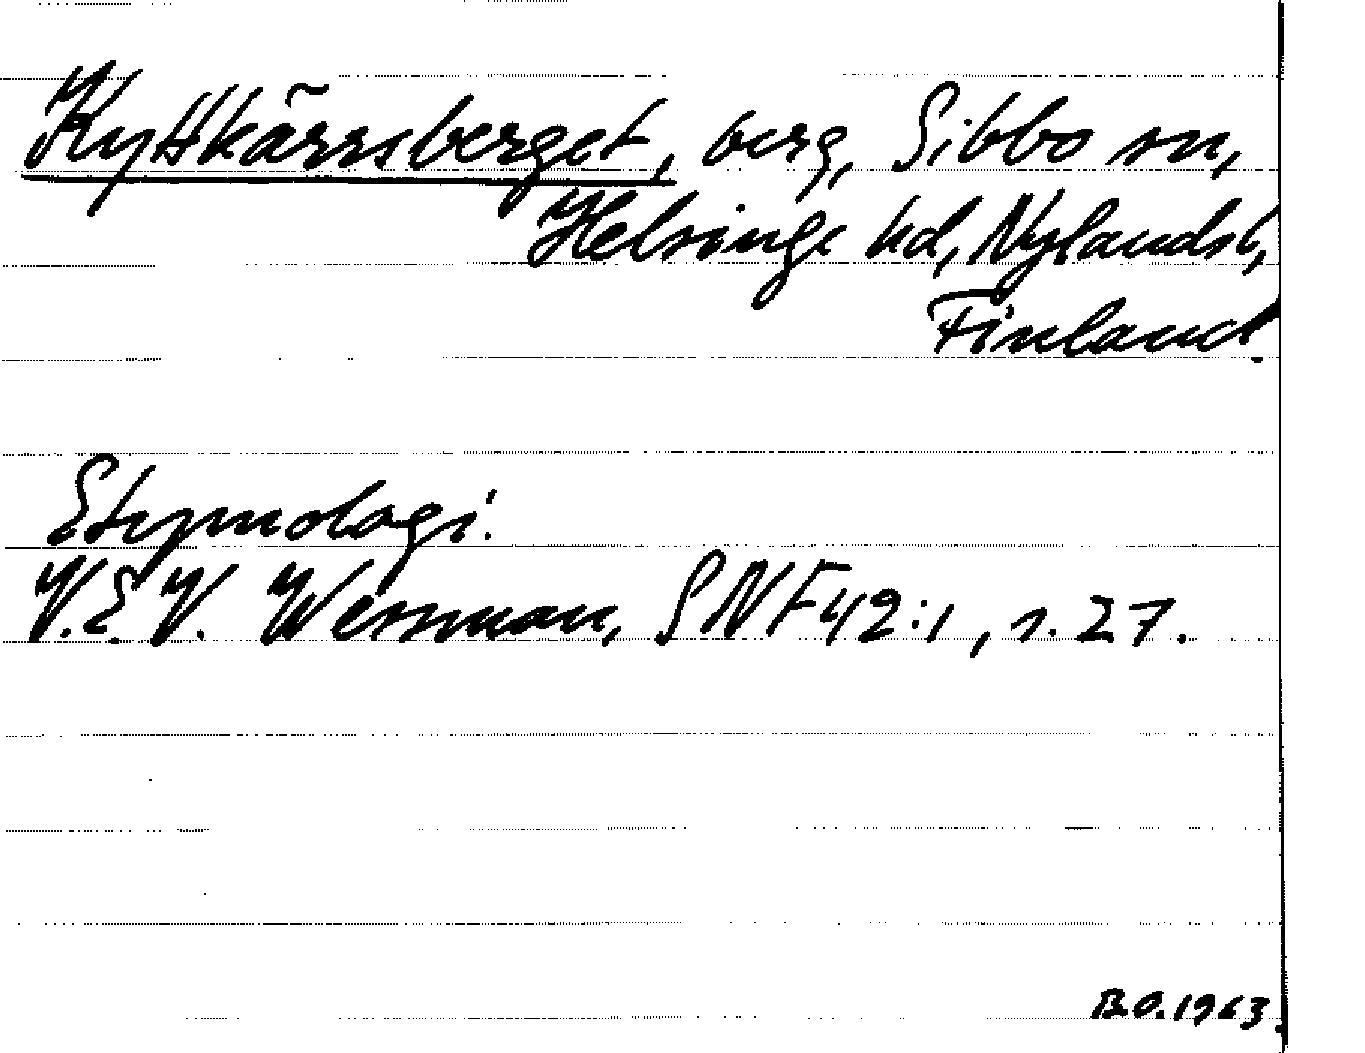 Kyttkärrsberget, berg, Sibbo sn,
Helsinge hd, Nylands l,
Finland.
Etymologi:
V.E.V. Wessman, SNF 42:1, s. 27.
B.O. 1963.